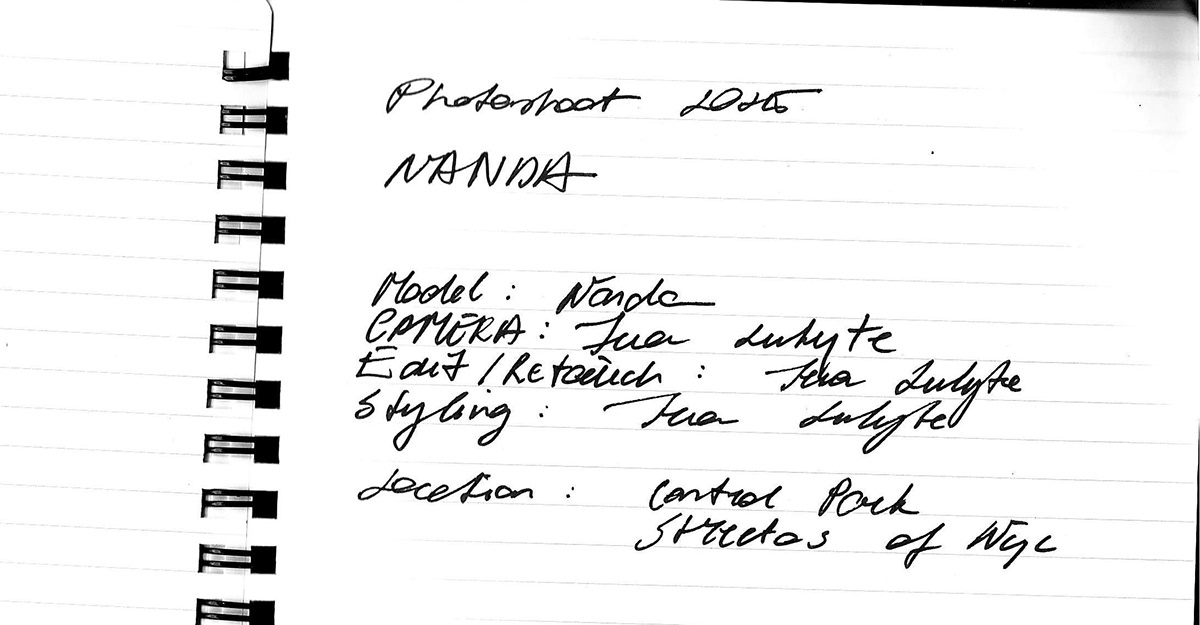 Photoshoot 2025
NANDA
Model: Nanda
CAMERA: Jua Lukyte
Edit/Retouch: Jua Lukyte
Styling: Jua Lukyte
Location: Central Park
Streetas of Nyc